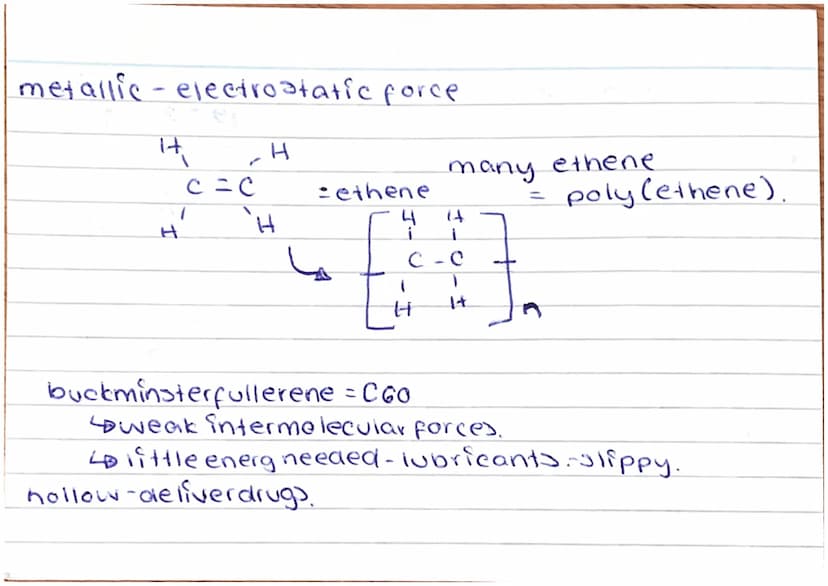 metallic - electrostatic force
H H
C = C
H H
= ethene
many ethene
= poly(ethene).
H H
C - C
H H
n
buckminsterfullerene = C60
↳ weak intermolecular forces.
↳ little energ needed - lubricants - slippy.
hollow - deliver drugs.